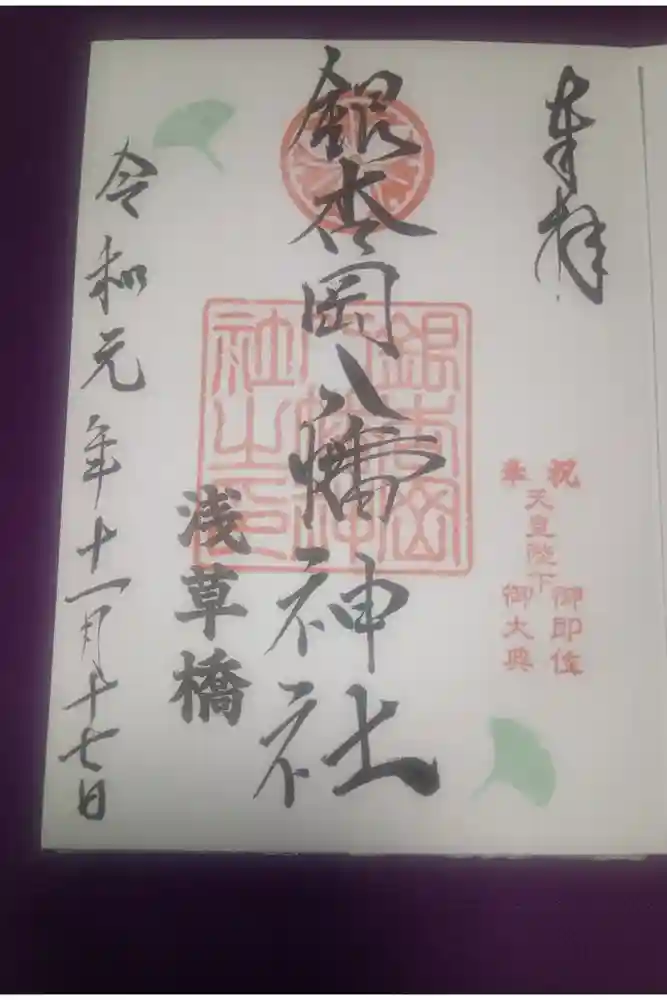 奉拝
祝 天皇陛下 御即位
奉 御大典
銀杏岡八幡神社
銀杏岡
社之印
浅草橋
令和元年十一月十七日